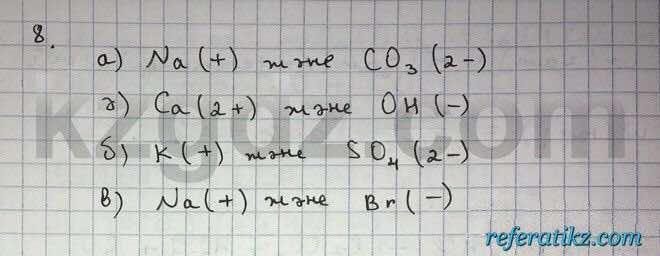 8.
а) Na (+) және CO₃ (2-)
ә) Ca (2+) және OH (-)
б) K (+) және SO₄ (2-)
в) Na (+) және Br (-)
kzgdz.com
referatikz.com